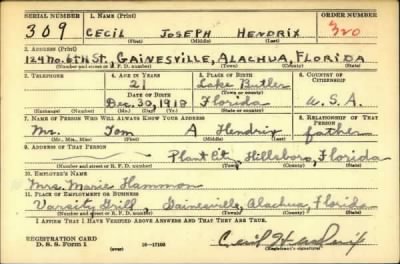 SERIAL NUMBER 1. NAME (Print) ORDER NUMBER
309 CECIL JOSEPH HENDRIX 320
(First) (Middle) (Last)
2. ADDRESS (Print)
124 NO. 6TH ST., GAINESVILLE, ALACHUA, FLORIDA
(Number and street or R. F. D. number) (Town) (County) (State)
3. TELEPHONE 4. AGE IN YEARS 5. PLACE OF BIRTH 6. COUNTRY OF CITIZENSHIP
21 Lake Butler
DATE OF BIRTH (Town or county)
Dec. 30, 1918 Florida U.S.A.
(Exchange) (Number) (Mo.) (Day) (Yr.) (State or country)
7. NAME OF PERSON WHO WILL ALWAYS KNOW YOUR ADDRESS 8. RELATIONSHIP OF THAT PERSON
Mr. Tom A Hendrix father
(Mr., Mrs., Miss) (First) (Middle) (Last)
9. ADDRESS OF THAT PERSON
Plant City, Hillsboro, Florida
(Number and street or R. F. D. number) (Town) (County) (State)
10. EMPLOYER'S NAME
Mrs. Marie Hammon
11. PLACE OF EMPLOYMENT OR BUSINESS
Varsity Grill, Gainesville, Alachua, Florida
(Number and street or R. F. D. number) (Town) (County) (State)
I AFFIRM THAT I HAVE VERIFIED ABOVE ANSWERS AND THAT THEY ARE TRUE.
REGISTRATION CARD
D. S. S. Form 1 16—17105 Cecil Hendrix
(Registrant's signature)